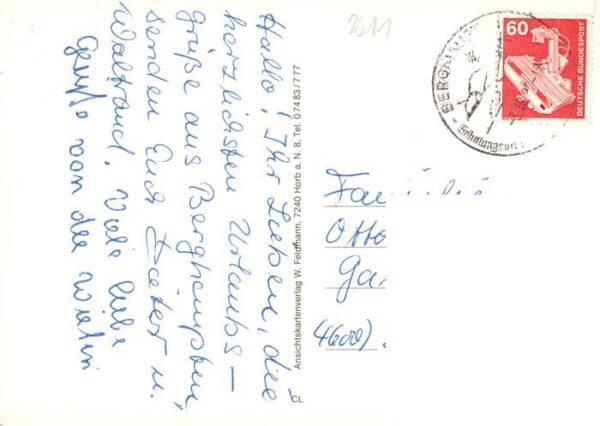 Hallo! Ihr Lieben, die
herzlichsten Urlaubs-
grüße aus Berghaupten,
senden Euch Dieter u.
Waltraud. Viele liebe
Grüße von der
CL
Ansichtskartenverlag W. Feldmann, 7240 Horb a. N. 8, Tel. 07483/777
2611
60
DEUTSCHE BUNDESPOST
Fa
Otto
Ga
4600